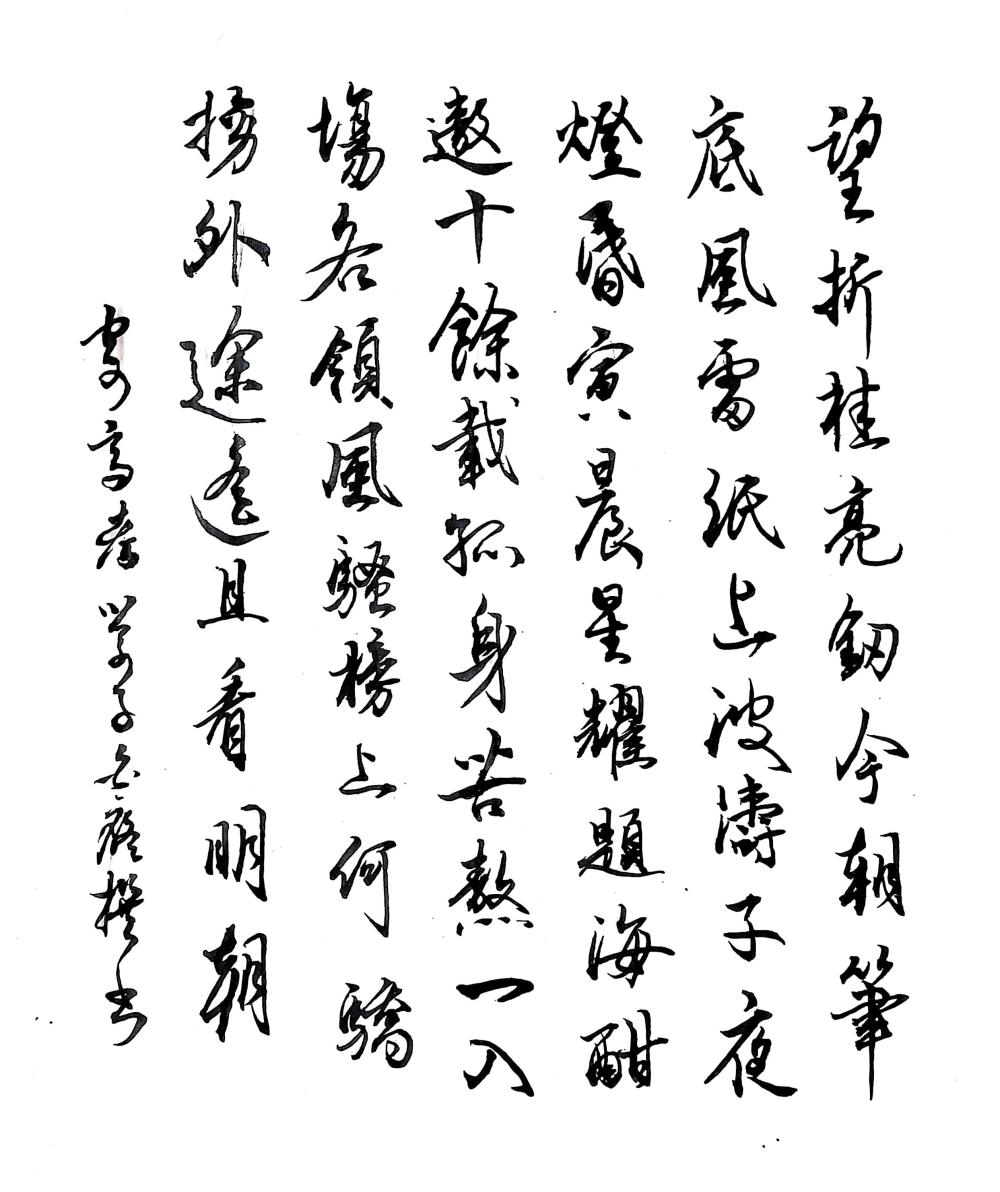 望折桂亮釰今朝筆
底風雷紙上波濤子夜
燈昏寅晨星耀題海酣
遨十餘載孤身苦熬一入
場各領風騷榜上何驕
榜外途遙且看明朝
寄高考學子 撰書